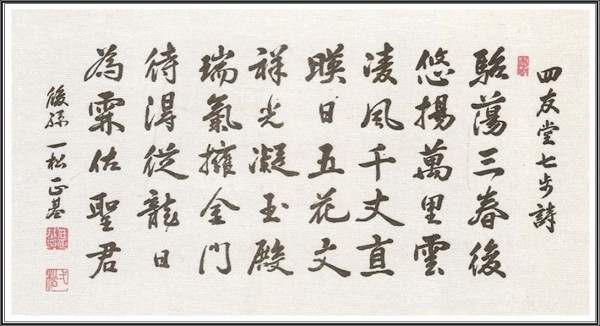 四友堂七步詩
駘蕩三春後
悠揚萬里雲
凌風千丈直
暎日五花文
祥光凝玉殿
瑞氣擁金門
待得從龍日
為霖佑聖君
後孫 一松 正基